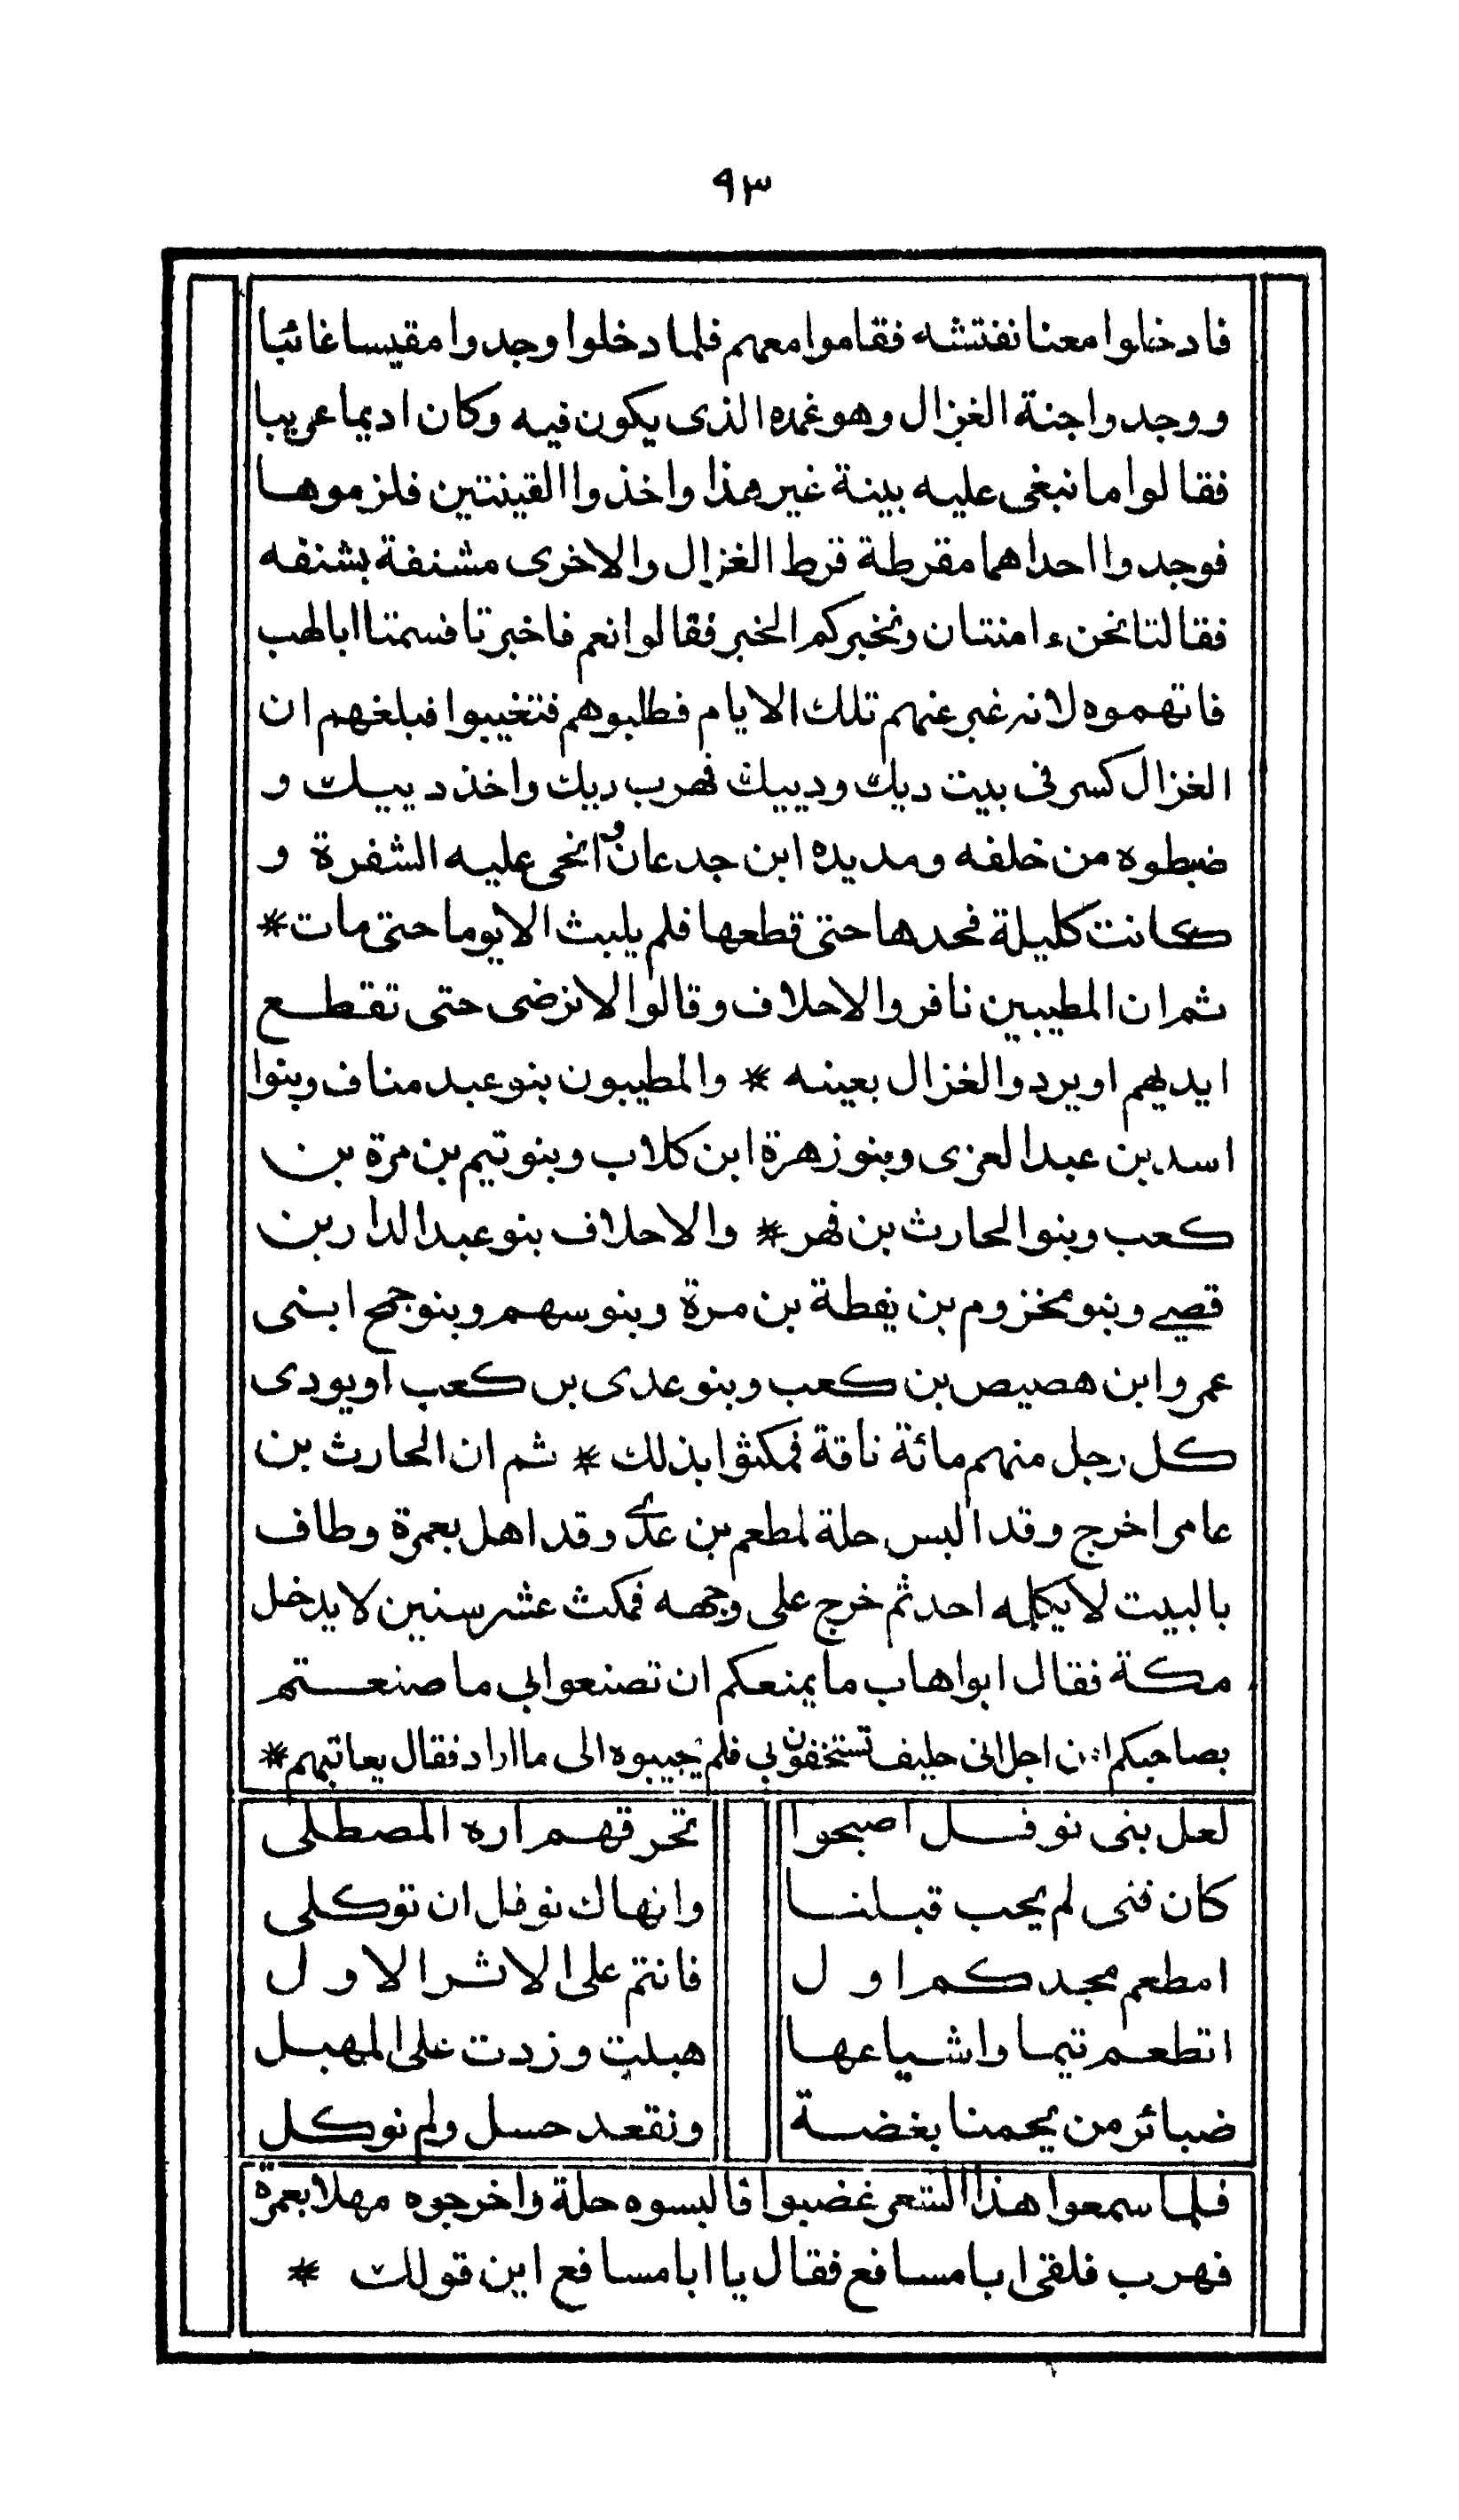 ٩٣
فادخلوا معنا نفتشه فقاموا معهم فلما دخلوا وجدوا مقيسا غائبا
ووجدوا جنة الغزال وهو غمده الذى يكون فيه وكان اديما عربيا
فقالوا ما نبغى عليه بينة غير هذا واخذوا القينتين فلزموها
فوجدوا احداهما مقرطة قرط الغزال والاخرى مشنفة بشنفه
فقالتا نحن ءامنتان ونخبركم الخبر فقالوا نعم فاخبرتا فسمتا ابا لهب
فاتهموه لانه غبر عنهم تلك الايام فطلبوهم فتغيبوا فبلغهم ان
الغزال كسر فى بيت ديك ودييك فهرب ديك واخذ دييك و
ضبطوه من خلفه ومد يده ابن جدعان وانحى عليه الشفرة و
كانت كليلة فحدها حتى قطعها فلم يلبث الا يوما حتى مات *
ثم ان المطيبين نافروا الاحلاف وقالوا لا نرضى حتى تقطع
ايديهم او يردوا الغزال بعينه * والمطيبون بنو عبد مناف وبنوا
اسد بن عبد العزى وبنو زهرة ابن كلاب وبنو تيم بن مرة بن
كعب وبنوا الحارث بن فهر * والاحلاف بنو عبد الدار بن
قصى وبنو مخزوم بن يقطة بن مرة وبنو سهم وبنو جمح ابنى
عمرو ابن هصيص بن كعب وبنو عدى بن كعب او يودى
كل رجل منهم مائة ناقة فمكثوا بذلك * ثم ان الحارث بن
عامر اخرج وقد البس حلة لمطعم بن عدى وقد اهل بعمرة وطاف
بالبيت لا يكلمه احد ثم خرج على وجهه فمكث عشر سنين لا يدخل
مكة فقال ابو اهاب ما يمنعكم ان تصنعوا بى ما صنعتم
بصاحبكم من اجل انى حليف تستخفون بى فلم يجيبوه الى ما اراد فقال يعاتبهم *
لعل بنى نوفل اصبحوا تحرقهم اره المصطلى
كان فتى لم يحب قبلنا وانهاك نوفل ان توكلى
امطعم مجدكم اول فانتم على الاثر الاول
اتطعم تيما واشياعها هبلت وزدت على المهبل
ضبائر من يحمنا بغضة ونقعد حسل ولم نوكل
فلما سمعوا هذا الشعر غضبوا فالبسوه حلة واخرجوه مهلا بعمرة
فهرب فلقى ابا مسافع فقال يا ابا مسافع اين قولك *